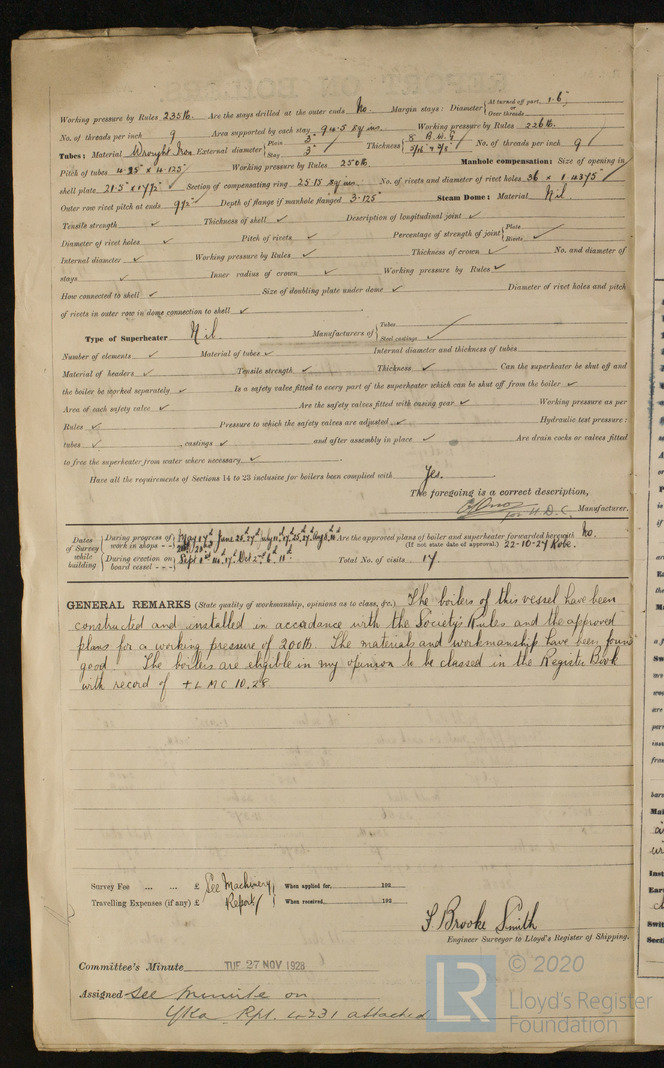 Working pressure by Rules 235 lb. Are the stays drilled at the outer ends No. Margin stays: Diameter { At turned off part, 1.6" or Over threads
No. of threads per inch 9 Area supported by each stay 94.5 sq ins. Working pressure by Rules 226 lb.
Tubes: Material Wrought Iron External diameter { Plain 3" Stay 3" Thickness { 8 B.W.G 5/16" & 3/8" No. of threads per inch 9
Pitch of tubes 4.25" x 4.125" Working pressure by Rules 250 lb Manhole compensation: Size of opening in
shell plate 21.5" x 17½" Section of compensating ring 25.15 sq ins No. of rivets and diameter of rivet holes 36 x 1.4375"
Outer row rivet pitch at ends 9½" Depth of flange if manhole flanged 3.125" Steam Dome: Material Nil.
Tensile strength ✓ Thickness of shell ✓ Description of longitudinal joint ✓
Diameter of rivet holes ✓ Pitch of rivets ✓ Percentage of strength of joint { Plate Rivets ✓
Internal diameter ✓ Working pressure by Rules ✓ Thickness of crown ✓ No. and diameter of
stays ✓ Inner radius of crown ✓ Working pressure by Rules ✓
How connected to shell ✓ Size of doubling plate under dome ✓ Diameter of rivet holes and pitch
of rivets in outer row in dome connection to shell ✓
Type of Superheater Nil. Manufacturers of { Tubes Steel castings ✓
Number of elements ✓ Material of tubes ✓ Internal diameter and thickness of tubes
Material of headers ✓ Tensile strength ✓ Thickness ✓ Can the superheater be shut off and
the boiler be worked separately ✓ Is a safety valve fitted to every part of the superheater which can be shut off from the boiler ✓
Area of each safety valve ✓ Are the safety valves fitted with easing gear ✓ Working pressure as per
Rules ✓ Pressure to which the safety valves are adjusted ✓ Hydraulic test pressure:
tubes ✓ , castings ✓ and after assembly in place ✓ Are drain cocks or valves fitted
to free the superheater from water where necessary ✓
Have all the requirements of Sections 14 to 23 inclusive for boilers been complied with Yes.
The foregoing is a correct description,
for H D C. Manufacturer.
Dates of Survey while building { During progress of work in shops - - Are the approved plans of boiler and superheater forwarded herewith No.
(If not state date of approval.) 22-10-27 Kobe.
During erection on board vessel - - - Total No. of visits 14
GENERAL REMARKS (State quality of workmanship, opinions as to class, &c.) The boilers of this vessel have been
constructed and installed in accordance with the Society's Rules and the approved
plans for a working pressure of 200 lb. The materials and workmanship have been found
good. The boilers are eligible in my opinion to be classed in the Register Book
with record of + L M C 10.28.
Survey Fee ... ... £ See Machinery When applied for, 192
Travelling Expenses (if any) £ Report When received, 192
F Brooke Smith
Engineer Surveyor to Lloyd's Register of Shipping.
Committee's Minute TUE. 27 NOV 1928
Assigned See minute on
YKa Rpt. 4231 attached
LR © 2020
Lloyd's Register
Foundation